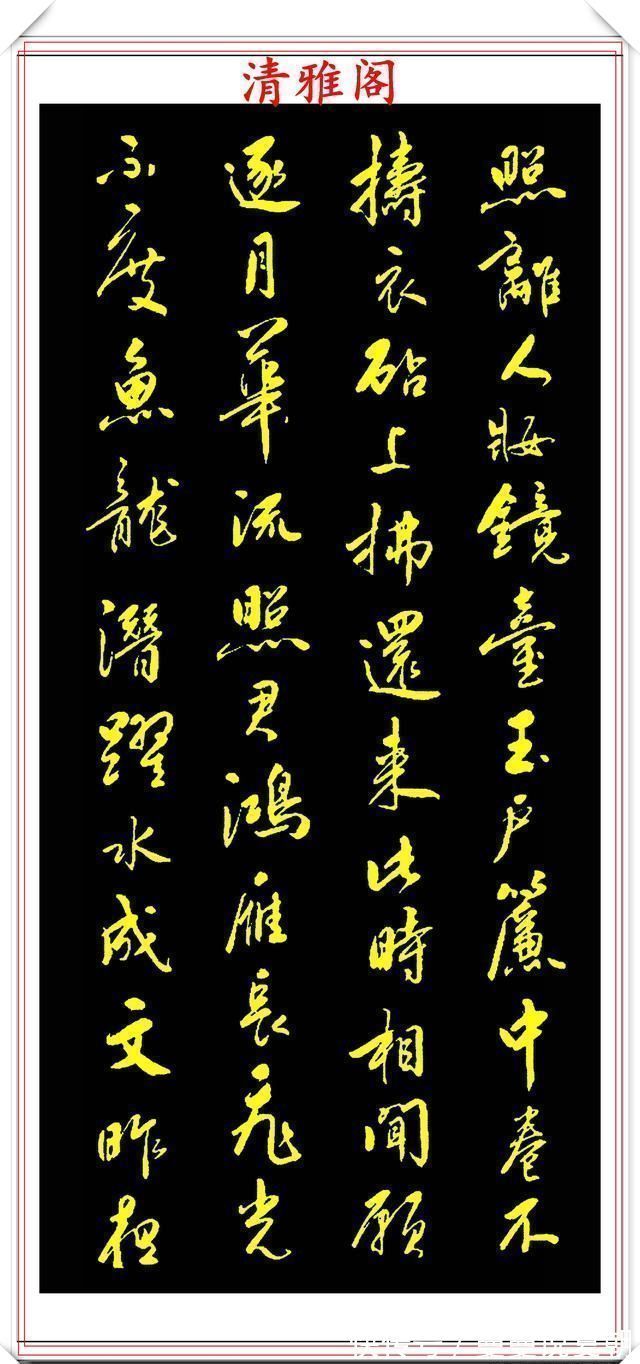 清雅阁
照離人妝鏡臺玉戶簾中卷不
擣衣砧上拂還來此時相聞願
逐月華流照君鴻雁長飛光
不度魚龍潛躍水成文昨